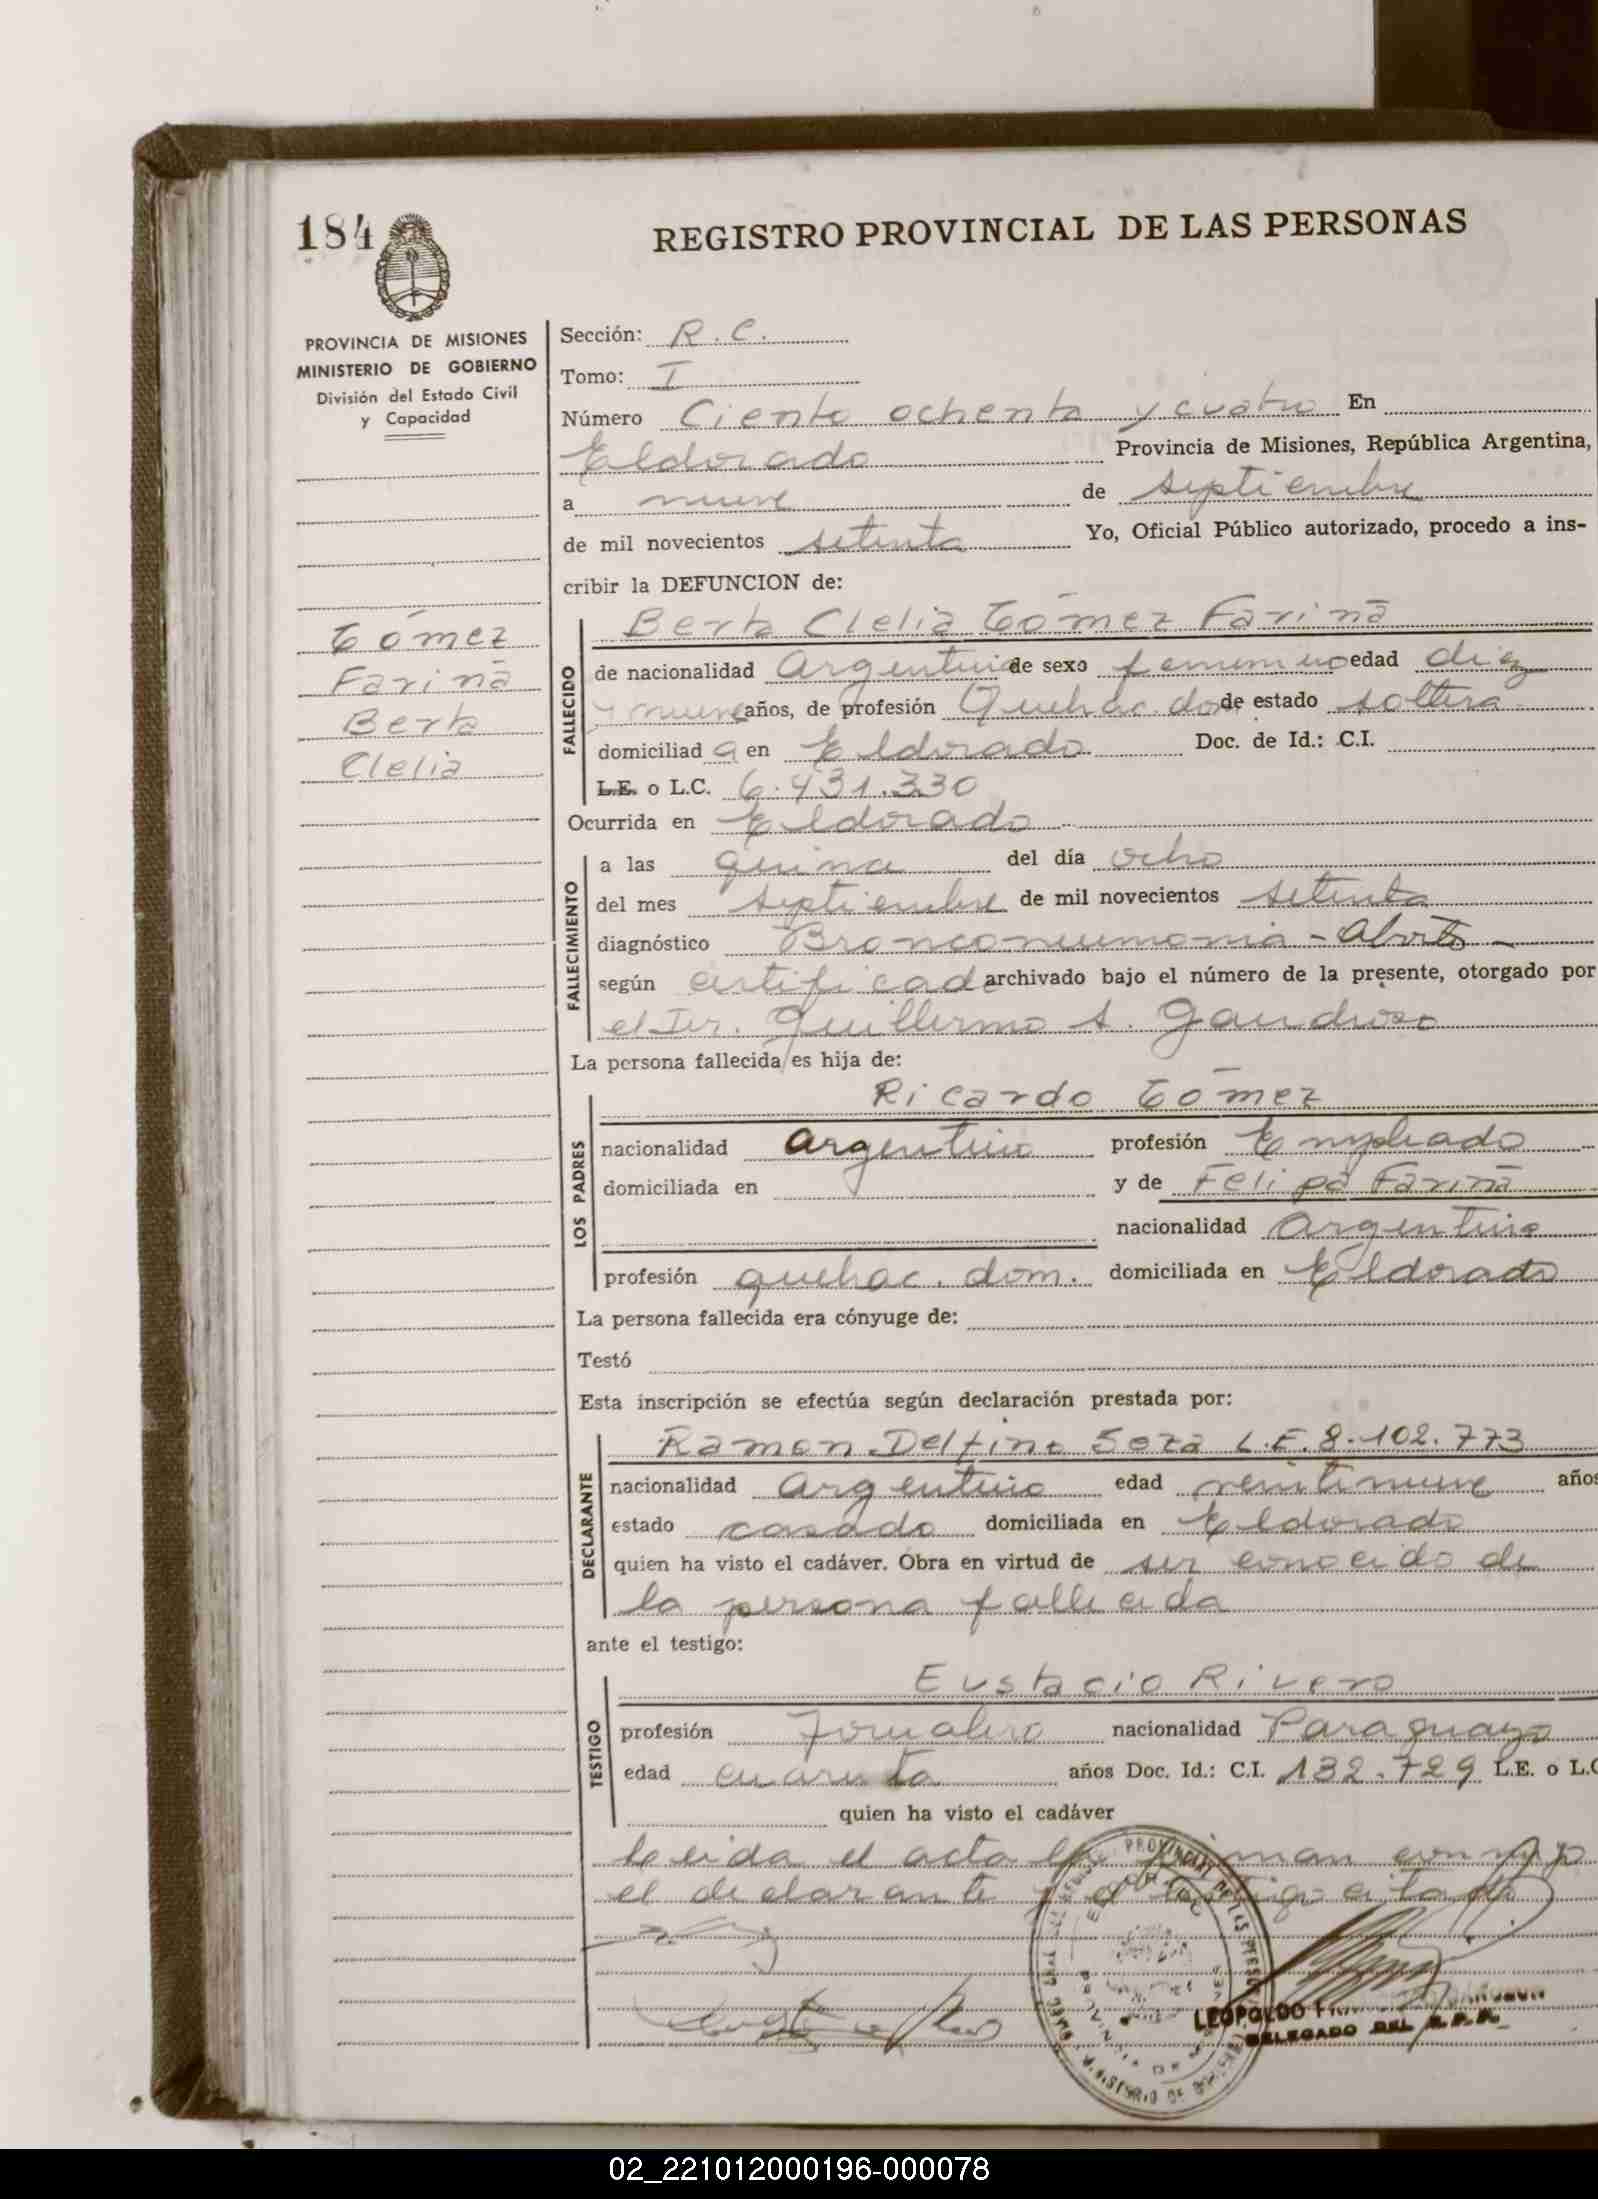 184
REGISTRO PROVINCIAL DE LAS PERSONAS
PROVINCIA DE MISIONES
MINISTERIO DE GOBIERNO
División del Estado Civil
y Capacidad
Gómez
Fariña
Berta
Clelia
Sección: R. C.
Tomo: I
Número Ciento ochenta y cuatro En
Eldorado Provincia de Misiones, República Argentina,
a nueve de septiembre
de mil novecientos setenta Yo, Oficial Público autorizado, procedo a ins-
cribir la DEFUNCION de:
FALLECIDO
Berta Clelia Gómez Fariña
de nacionalidad Argentina de sexo femenino edad diez
y nueve años, de profesión Quehac. dom. de estado soltera
domiciliad a en Eldorado Doc. de Id.: C.I.
L.E. o L.C. 6.431.330
Ocurrida en Eldorado
FALLECIMIENTO
a las quince del día ocho
del mes septiembre de mil novecientos setenta
diagnóstico Bronconeumonia - Aborto -
según certificado archivado bajo el número de la presente, otorgado por
el Dr. Guillermo A. Gandroso
La persona fallecida es hija de:
LOS PADRES
Ricardo Gómez
nacionalidad Argentino profesión Empleado
domiciliada en y de Felipa Fariña
nacionalidad Argentina
profesión quehac. dom. domiciliada en Eldorado
La persona fallecida era cónyuge de:
Testó
Esta inscripción se efectúa según declaración prestada por:
DECLARANTE
Ramon Delfino Soza L.E. 8.102.773
nacionalidad Argentino edad veintinueve años
estado casado domiciliada en Eldorado
quien ha visto el cadáver. Obra en virtud de ser conocido de
la persona fallecida
ante el testigo:
TESTIGO
Eustacio Rivero
profesión Jornalero nacionalidad Paraguayo
edad cuarenta años Doc. Id.: C.I. 132.729 L.E. o L.C
quien ha visto el cadáver
Leida el acta la firman conmigo
el declarante y el testigo citado
LEOPOLDO
DELEGADO DEL R.P.P.
02_221012000196-000078